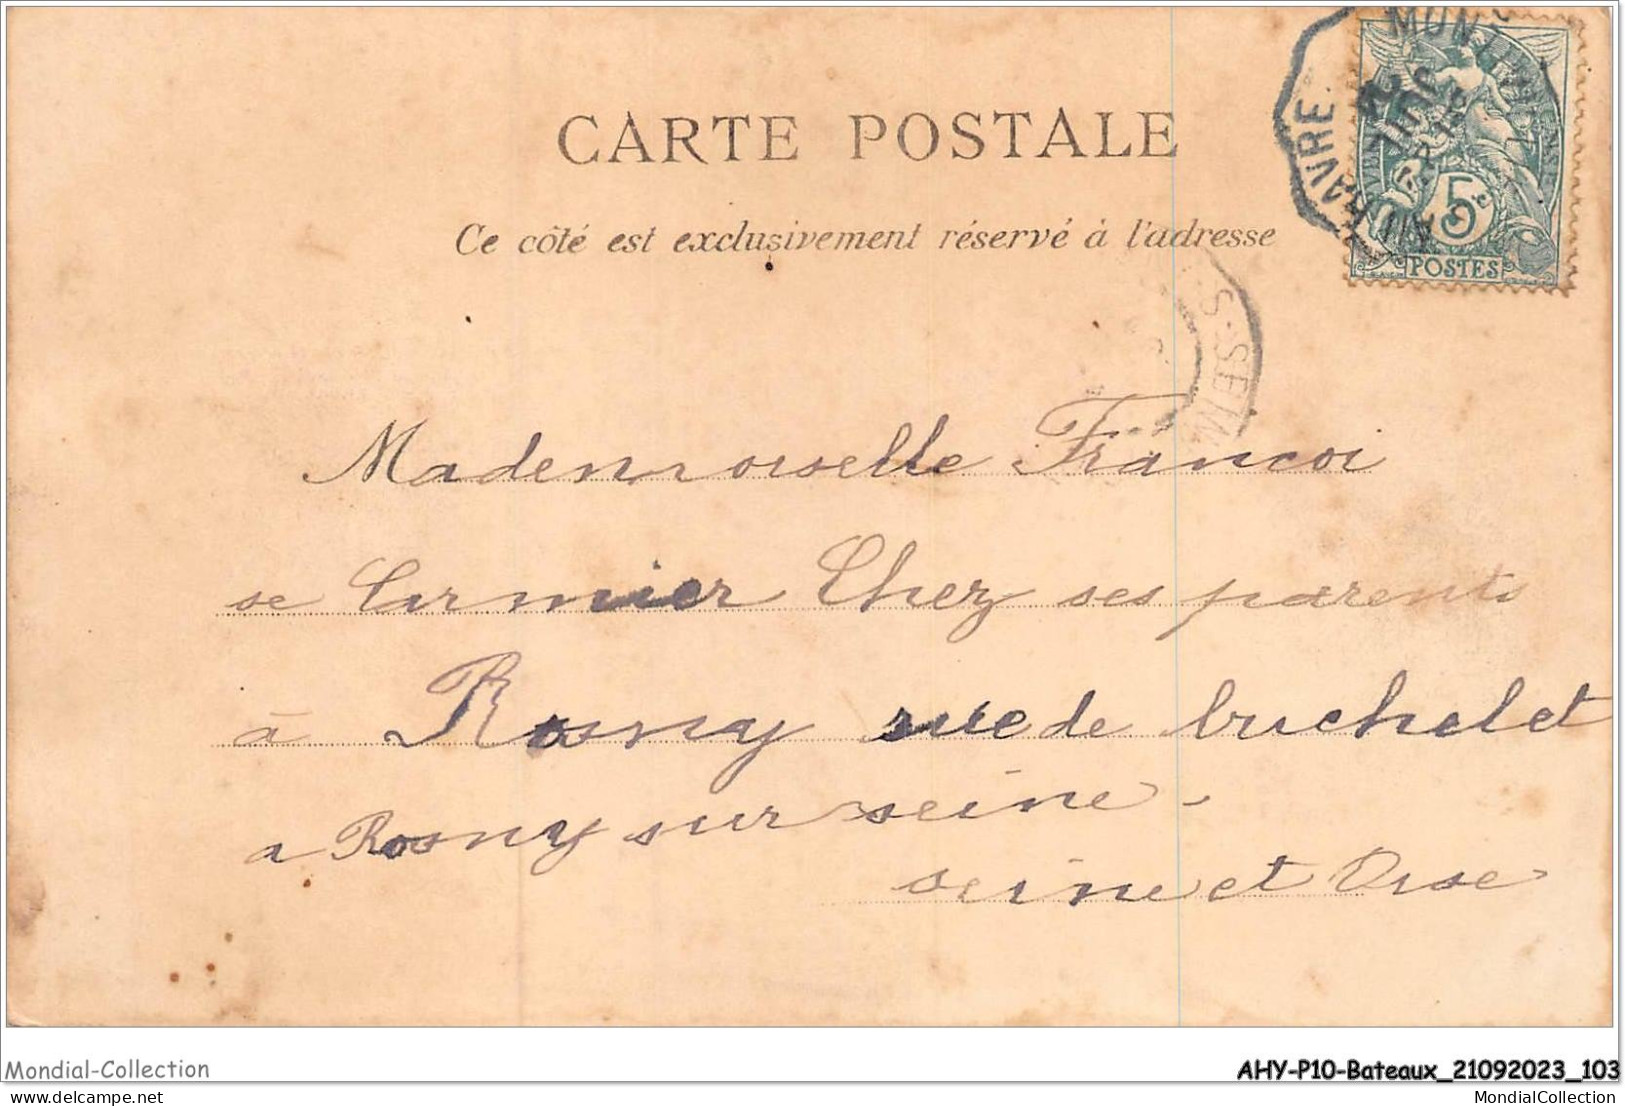 CARTE POSTALE
Ce côté est exclusivement réservé à l'adresse
HAVRE
5
POSTES
S.-SEIN
Mademoiselle Francoi
se Carmier Chez ses parents
à Rosny rue de buchelet
a Rosny sur seine -
seine et Oise
Mondial-Collection
AHY-P10-Bateaux_21092023_103
delcampe.net
MondialCollection